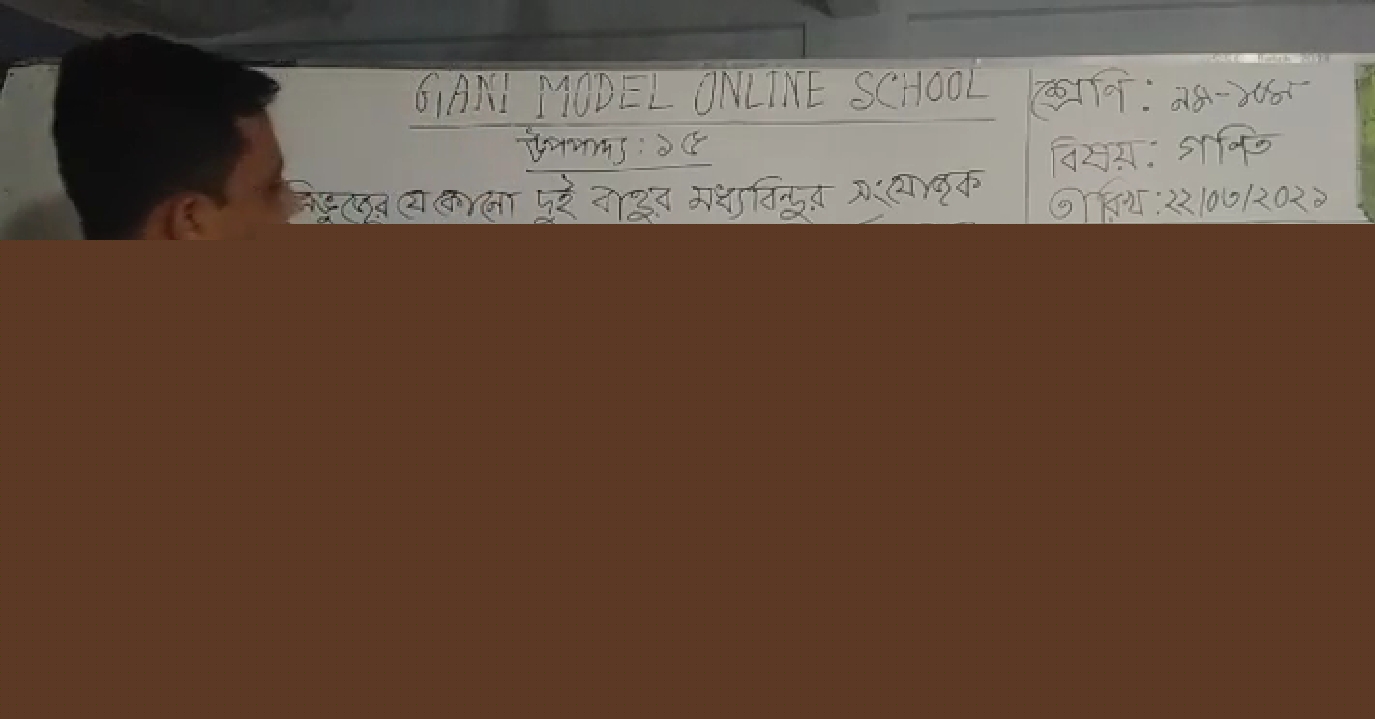 GANI MODEL ONLINE SCHOOL
উপপাদ্য : ১৫
ত্রিভুজের যে কোনো দুই বাহুর মধ্যবিন্দুর সংযোজক
শ্রেণি : নবম-দশম
বিষয় : গণিত
তারিখ : ২২/০৩/২০২১